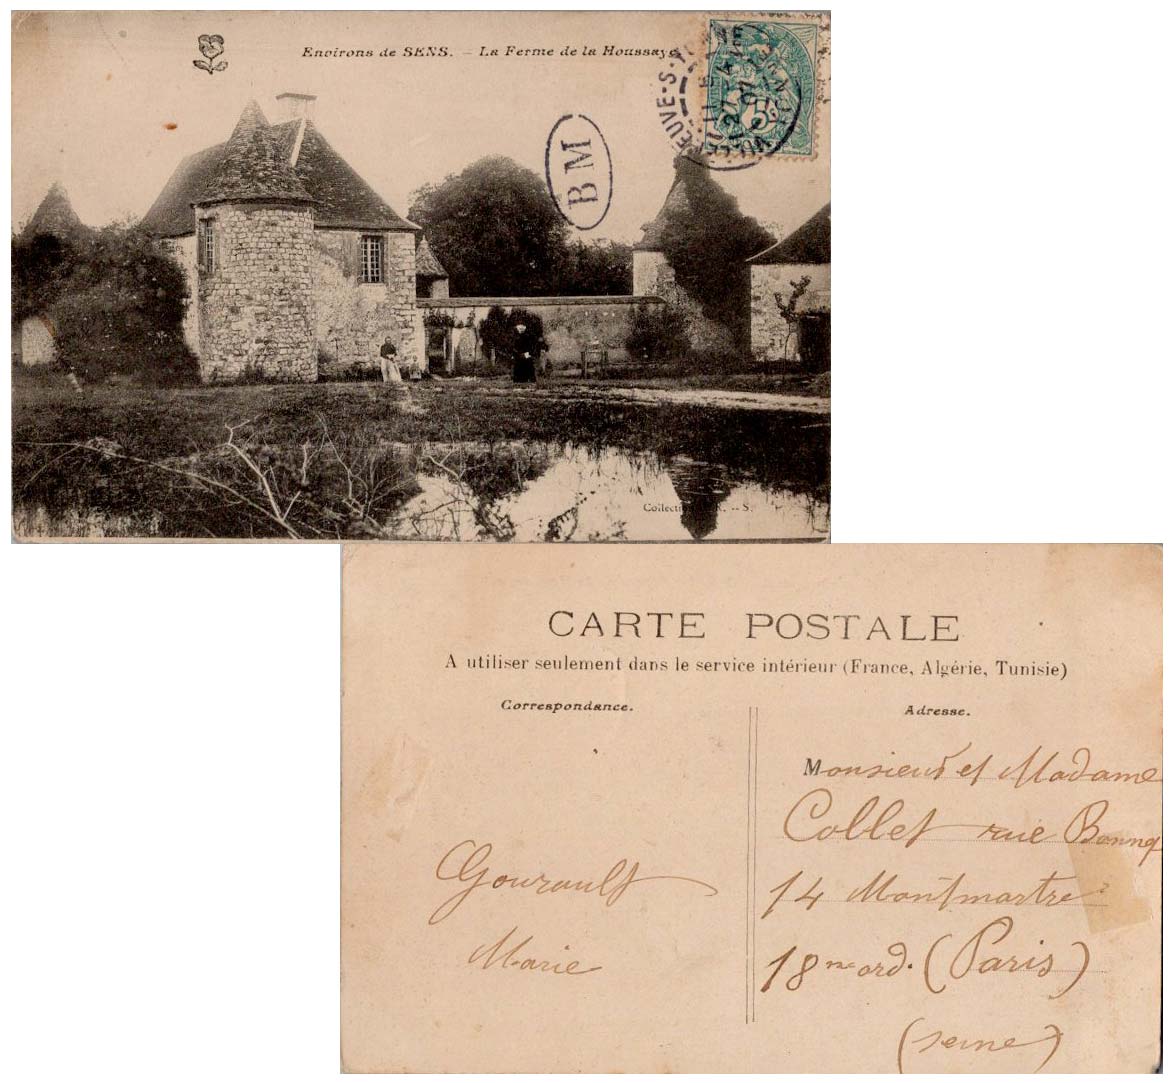 Environs de SENS. – La Ferme de la Houssaye
5
BM
Collection – S.
CARTE POSTALE
A utiliser seulement dans le service intérieur (France, Algérie, Tunisie)
Correspondance.
Adresse.
Monsieur et Madame
Collet rue Bonnet
14 Montmartre
18me ord. (Paris)
(seine)
Gourault
Marie